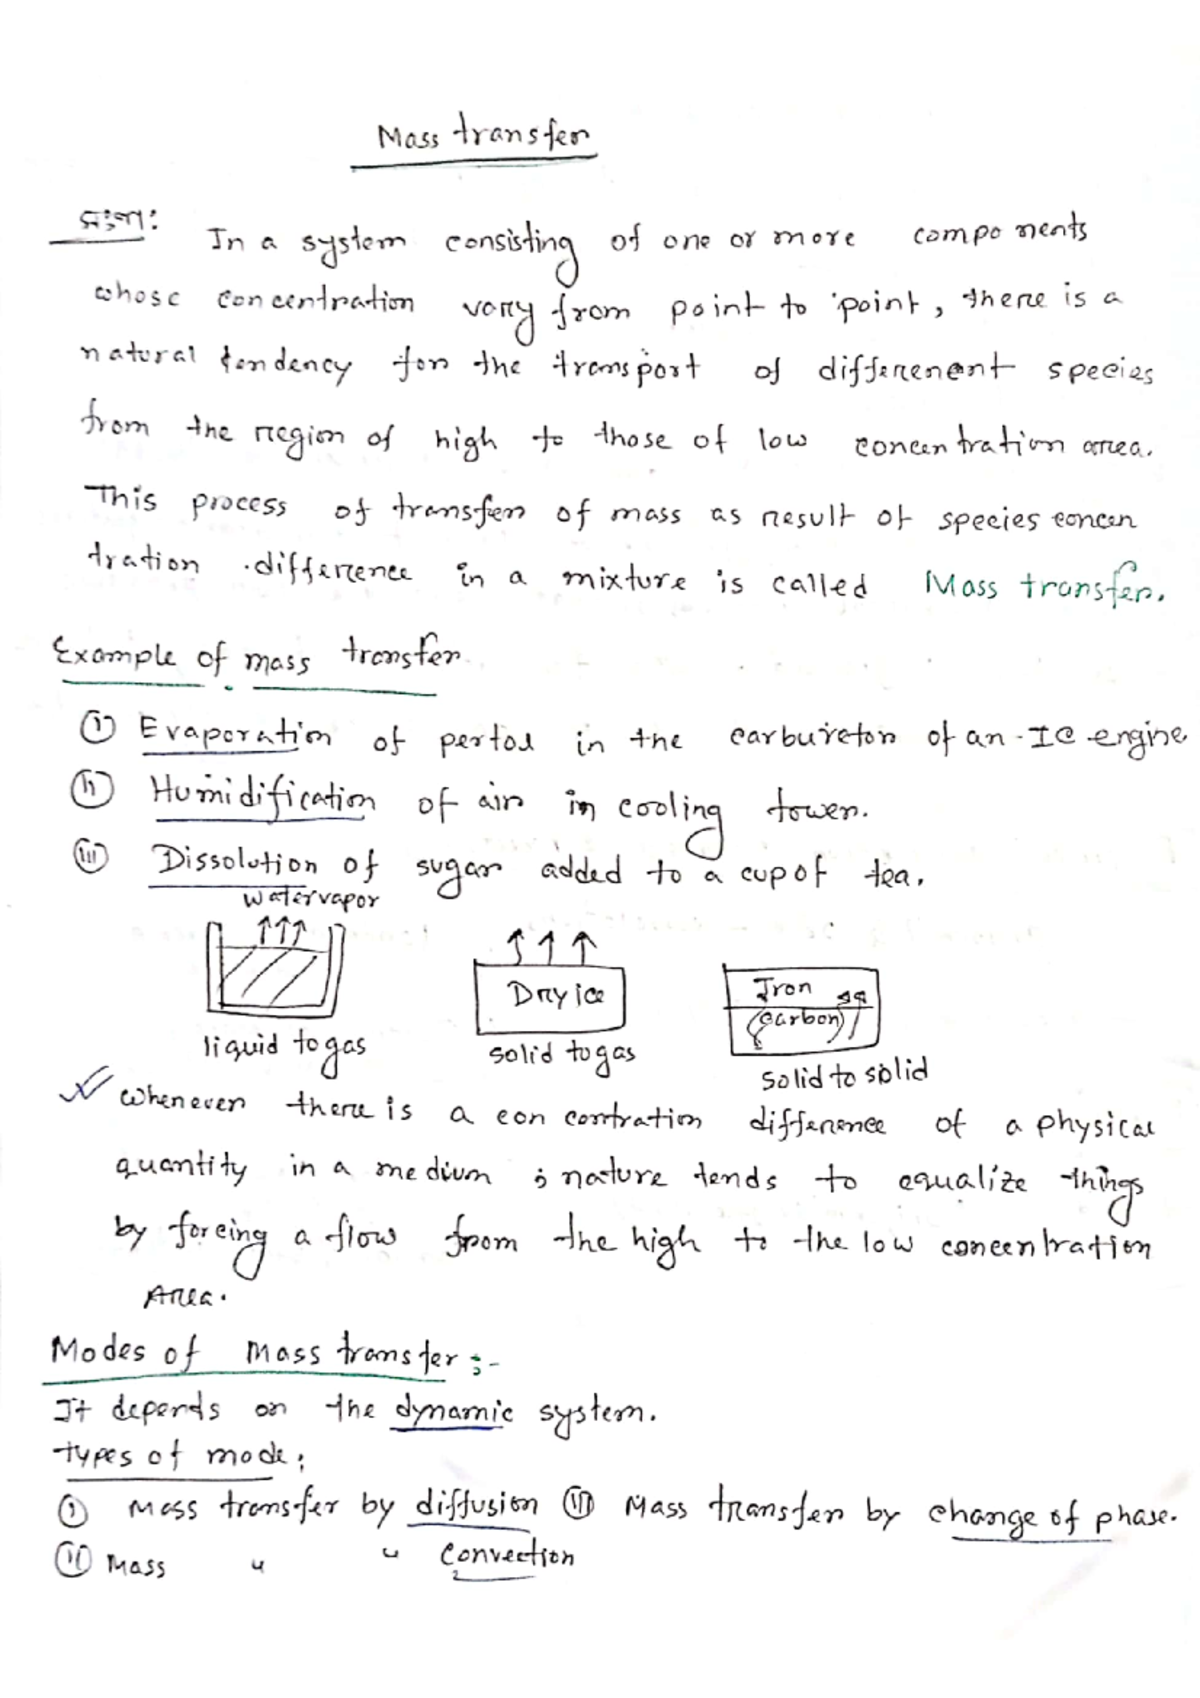 Mass transfer
সংজ্ঞা: In a system consisting of one or more components
whose concentration vary from point to point, there is a
natural tendency for the transport of differenent species
from the region of high to those of low concentration area.
This process of transfer of mass as result of species concen
tration difference in a mixture is called Mass transfer.
Example of mass transfer
(i) Evaporation of pertol in the carburetor of an IC engine
(ii) Humidification of air in cooling tower.
(iii) Dissolution of sugar added to a cup of tea.
water vapor
Dry ice
Iron
(carbon)
liquid to gas
solid to gas
solid to solid
whenever there is a concontration difference of a physical
quantity in a medium ; nature tends to equalize things
by forcing a flow from the high to the low concentration
Area.
Modes of mass transfer :-
It depends on the dynamic system.
types of mode;
(i) Mass transfer by diffusion (iii) Mass transfer by change of phase.
(ii) Mass " " Convection